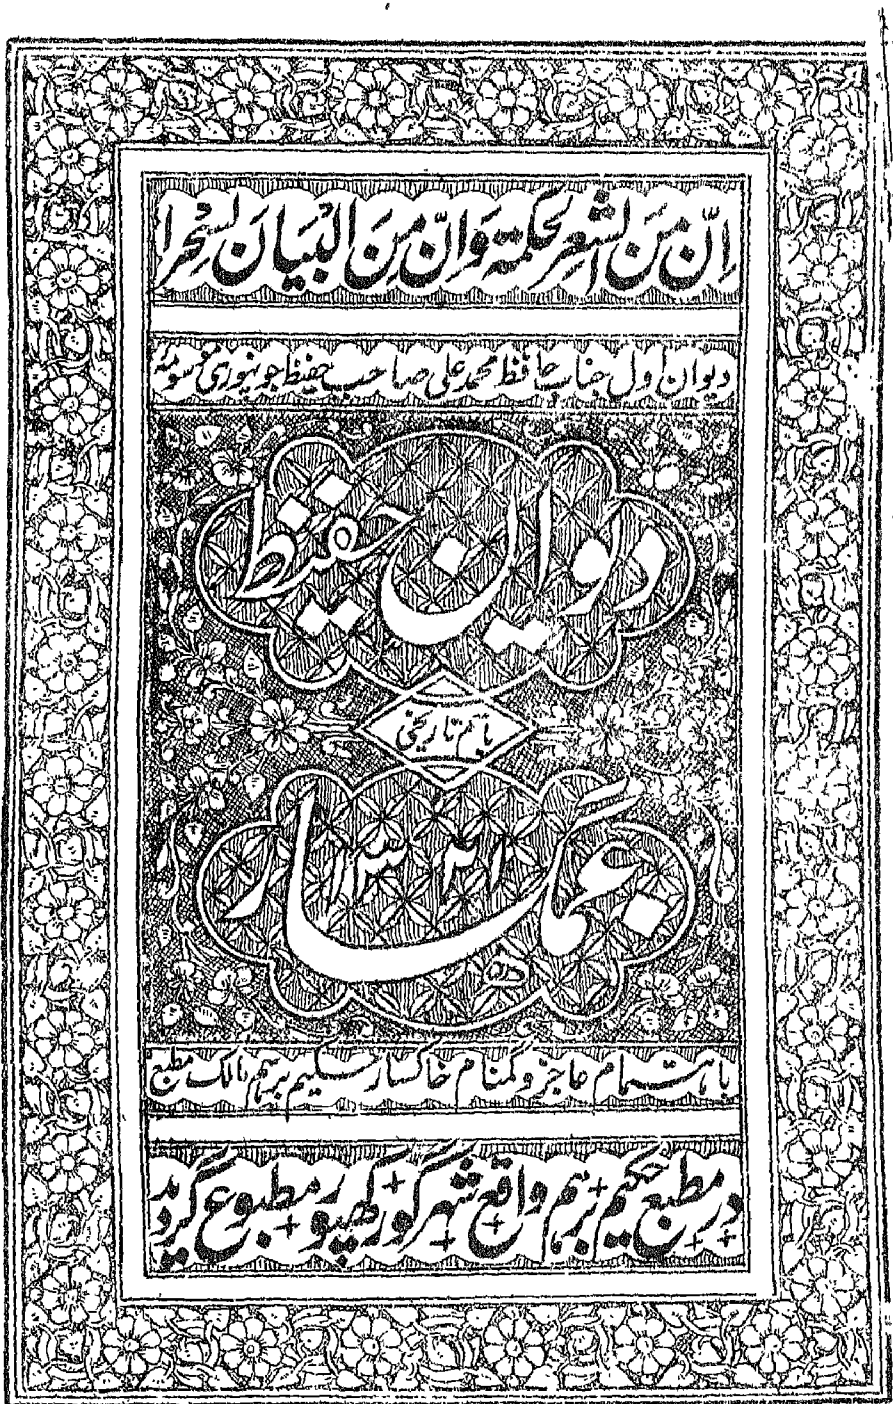 اِنَّ مِنَ الشِعْرِ لَحِکمَة وَاِنَّ مِنَ البَیَانِ لَسِحْرا
دیوان اول جناب حافظ محمد علی صاحب حفیظ جونپوری موسومہ
دیوان حفیظ
باسم تاریخی
غمگسار
۱۳۲۱
باہتمام عاجز و گمنام خاکسار حکیم برہم مالک مطبع
در مطبع حکیم برہم واقع شہر گورکھپور مطبوع گردید